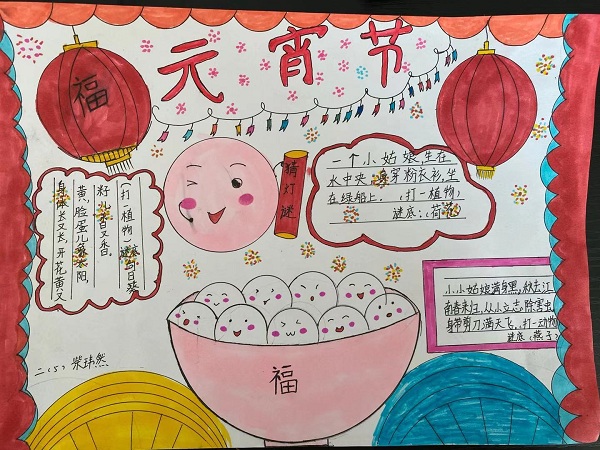 元宵节
福
猜灯谜
一个小姑娘生在
水中央,身穿粉长衫,坐
在绿船上。(打一植物)
谜底:(荷花)
身体长又长,开花黄又
黄,脸蛋儿像太阳,
籽儿香又香。
(打一植物 谜底:向日葵
小小姑娘满身黑,秋去江
南春来归,从小立志除害虫
身带剪刀满天飞。(打一动物
谜底(燕子)
二(5) 柴玮然
福